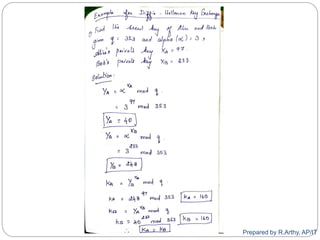 Example for Diffie - Hellman Key Exchange
1) Find the secret key of Alice and Bob
given q = 353 and alpha (α) = 3,
Alice's private key XA = 97
Bob's private key XB = 233.
Solution:
YA = α^XA mod q.
= 3^97 mod 353
YA = 40
YB = α^XB mod q.
= 3^233 mod 353
YB = 248
KA = YB^XA mod q
KA = 248^97 mod 353 KA = 160
KB = YA^XB mod q
KB = 40^233 mod 353 KB = 160
∴ KA = KB
Prepared by R.Arthy, AP/IT